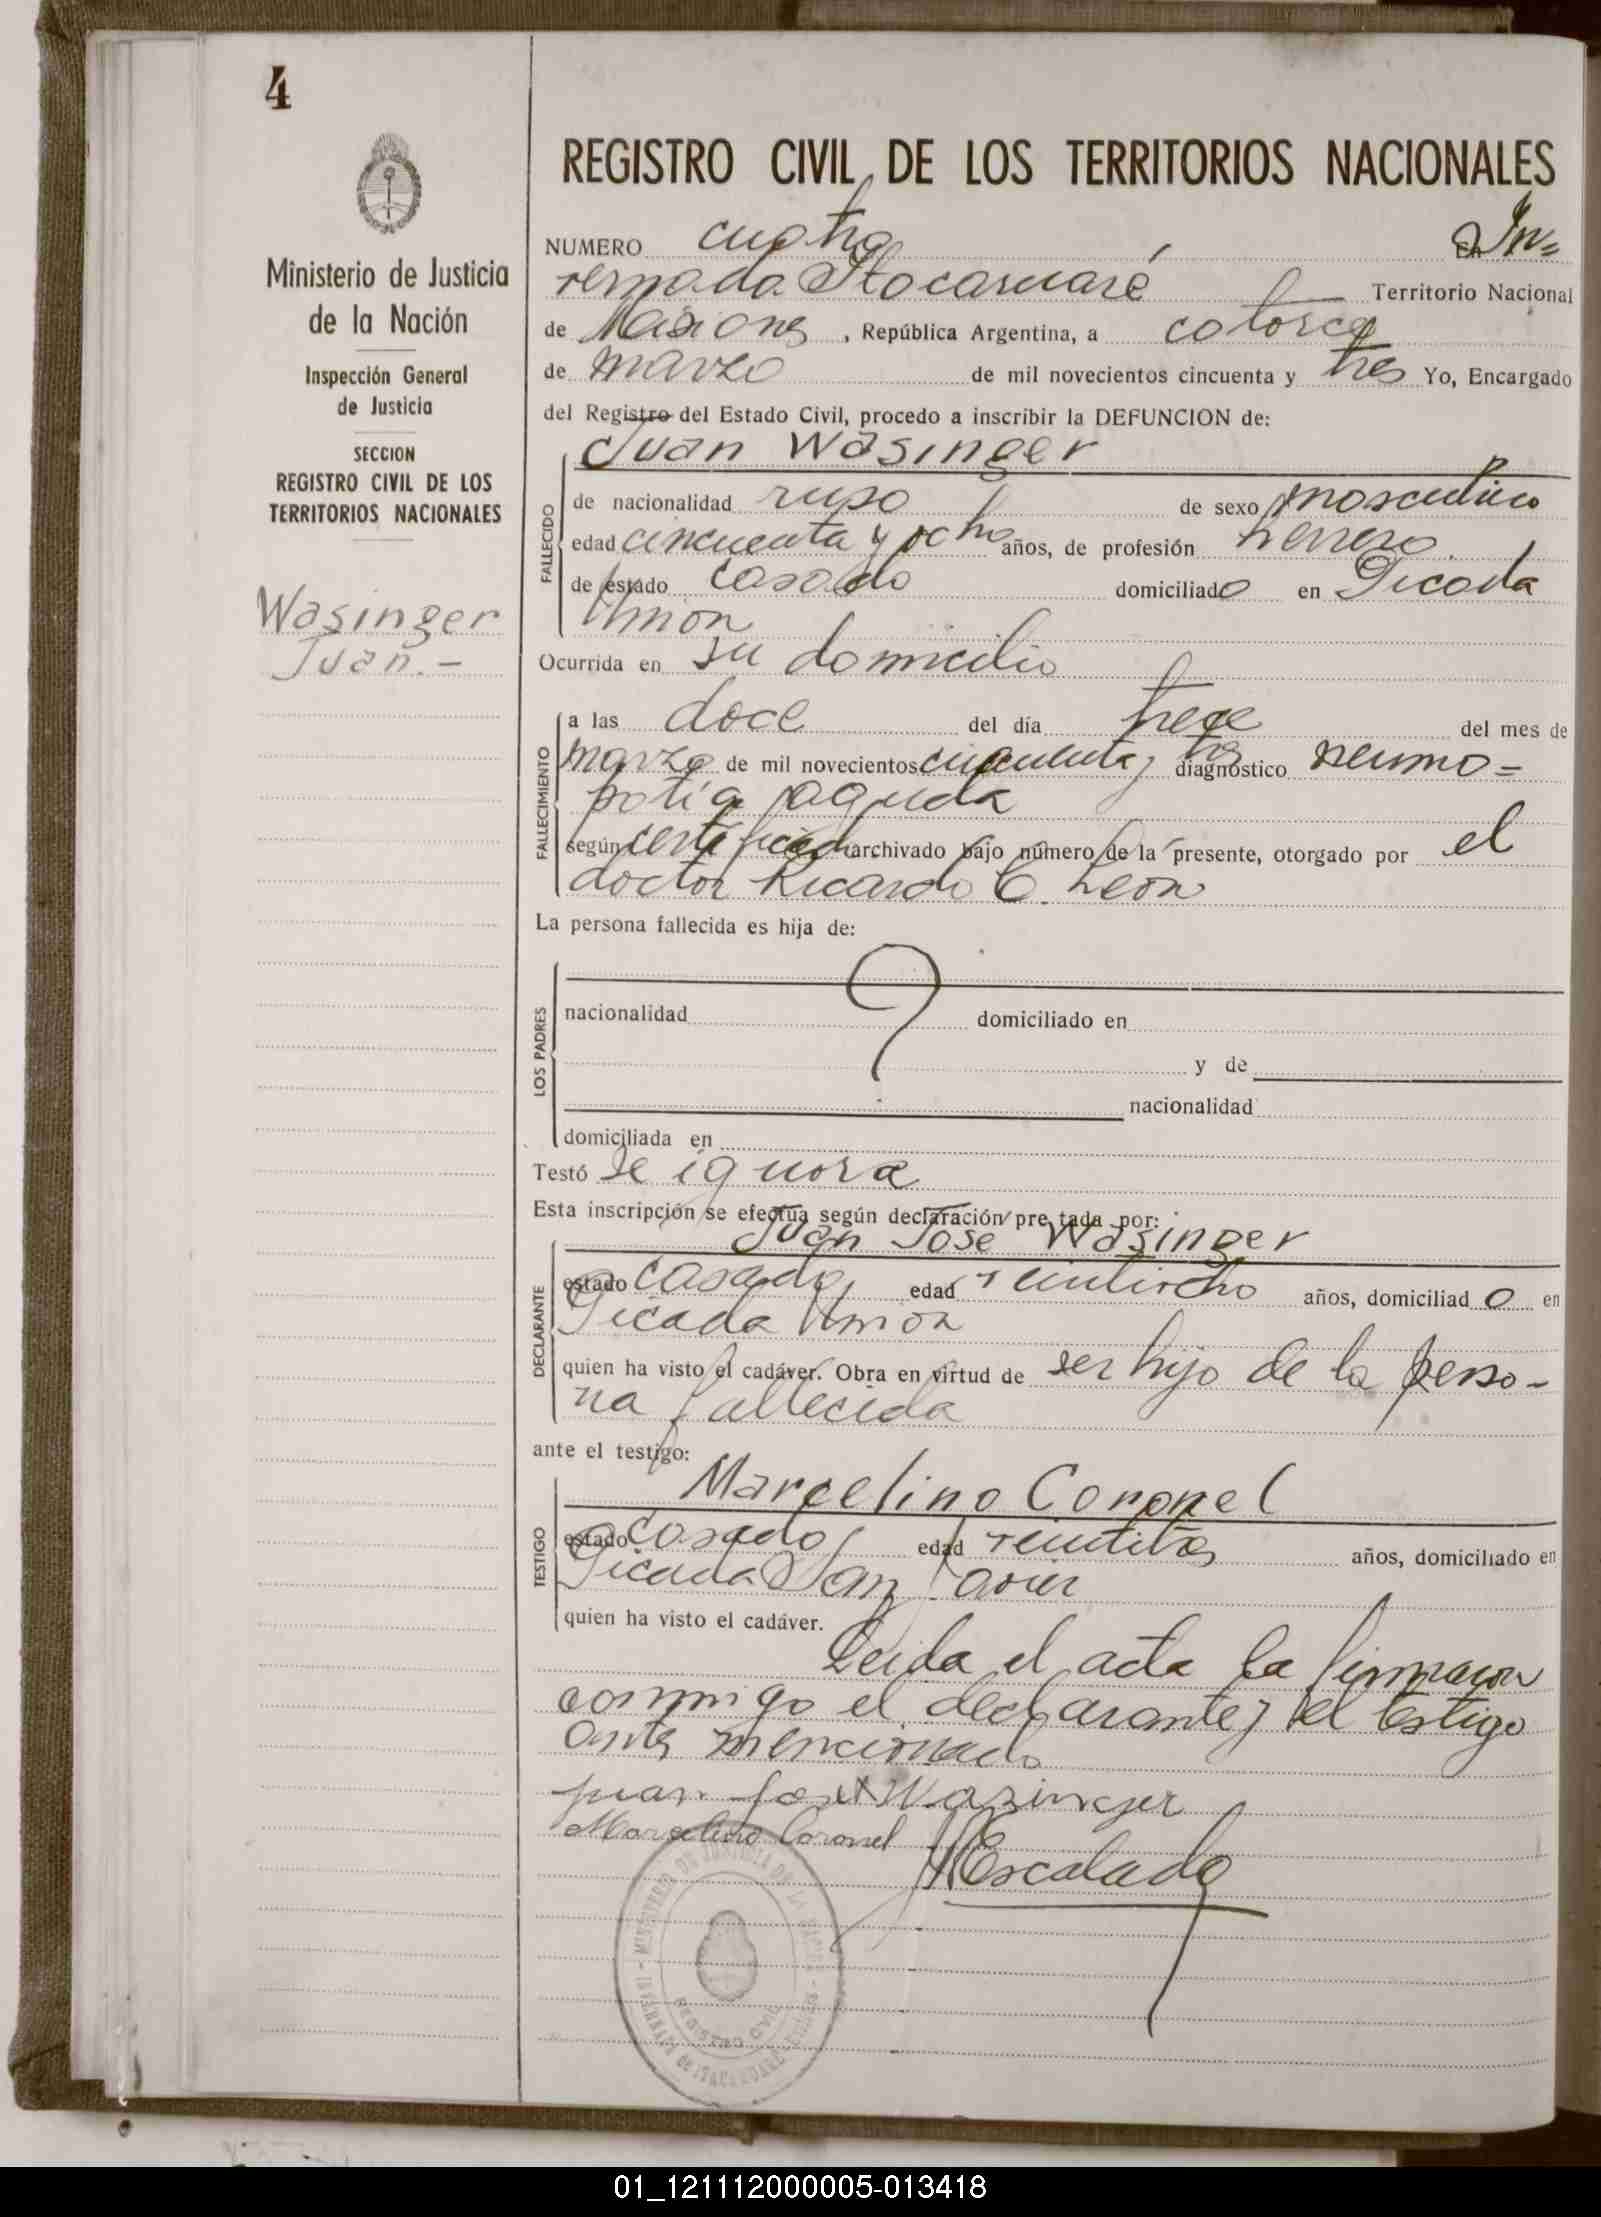 4
REGISTRO CIVIL DE LOS TERRITORIOS NACIONALES
Ministerio de Justicia
de la Nación
Inspección General
de Justicia
SECCION
REGISTRO CIVIL DE LOS
TERRITORIOS NACIONALES
Wasinger
Juan.-
NUMERO cuatro En In=
vernada Itacaruaré Territorio Nacional
de Misiones, República Argentina, a catorce
de marzo de mil novecientos cincuenta y tres Yo, Encargado
del Registro del Estado Civil, procedo a inscribir la DEFUNCION de:
Juan Wasinger
FALLECIDO
de nacionalidad ruso de sexo masculino
edad cincuenta y ocho años, de profesión herrero.
de estado casado domiciliado en Picada
Unión
Ocurrida en su domicilio
FALLECIMIENTO
a las doce del día trece del mes de
marzo de mil novecientos cincuenta y tres diagnóstico neumo=
patía aguda
según certificado archivado bajo número de la presente, otorgado por el
doctor Ricardo C. León
La persona fallecida es hija de:
LOS PADRES
?
nacionalidad domiciliado en
y de
nacionalidad
domiciliada en
Testó se ignora
Esta inscripción se efectúa según declaración pre tada por:
Juan Jose Wasinger
DECLARANTE
estado casado, edad veintiocho años, domiciliado en
Picada Unión
quien ha visto el cadáver. Obra en virtud de ser hijo de la perso-
na fallecida
ante el testigo:
Marcelino Coronel
TESTIGO
estado casado edad veintitrés años, domiciliado en
Picada San Javier
quien ha visto el cadáver.
Leída el acta la firmaron
conmigo el declarante y el testigo
antes mencionado
juan José Wasinger
Marcelino Coronel
Escalada
MINISTERIO DE JUSTICIA DE LA NACION
REGISTRO CIVIL
01_121112000005-013418